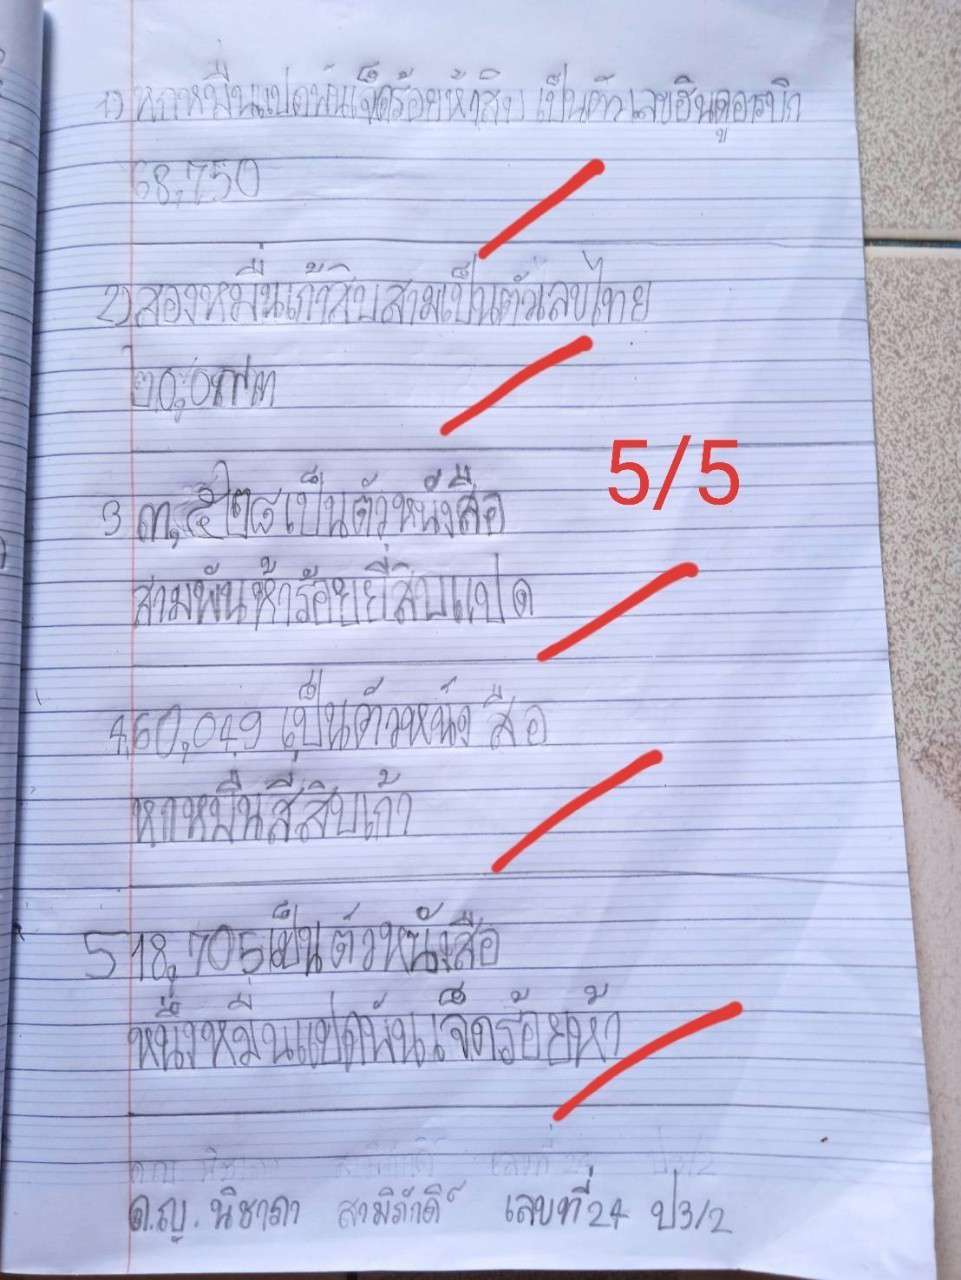 1) หกหมื่นแปดพันเจ็ดร้อยห้าสิบ เป็นตัวเลขฮินดูอารบิก
68,750
2) สองหมื่นเก้าสิบสามเป็นตัวเลขไทย
๒๐,๐๙๓
5/5
3 ๓,๕๒๘ เป็นตัวหนังสือ
สามพันห้าร้อยยี่สิบแปด
4.60,049 เป็นตัวหนังสือ
หกหมื่นสี่สิบเก้า
5 18,705 เป็นตัวหนังสือ
หนึ่งหมื่นแปดพันเจ็ดร้อยห้า
ด.ญ. นิชาภา สามิภักดิ์ เลขที่ 24 ป3/2